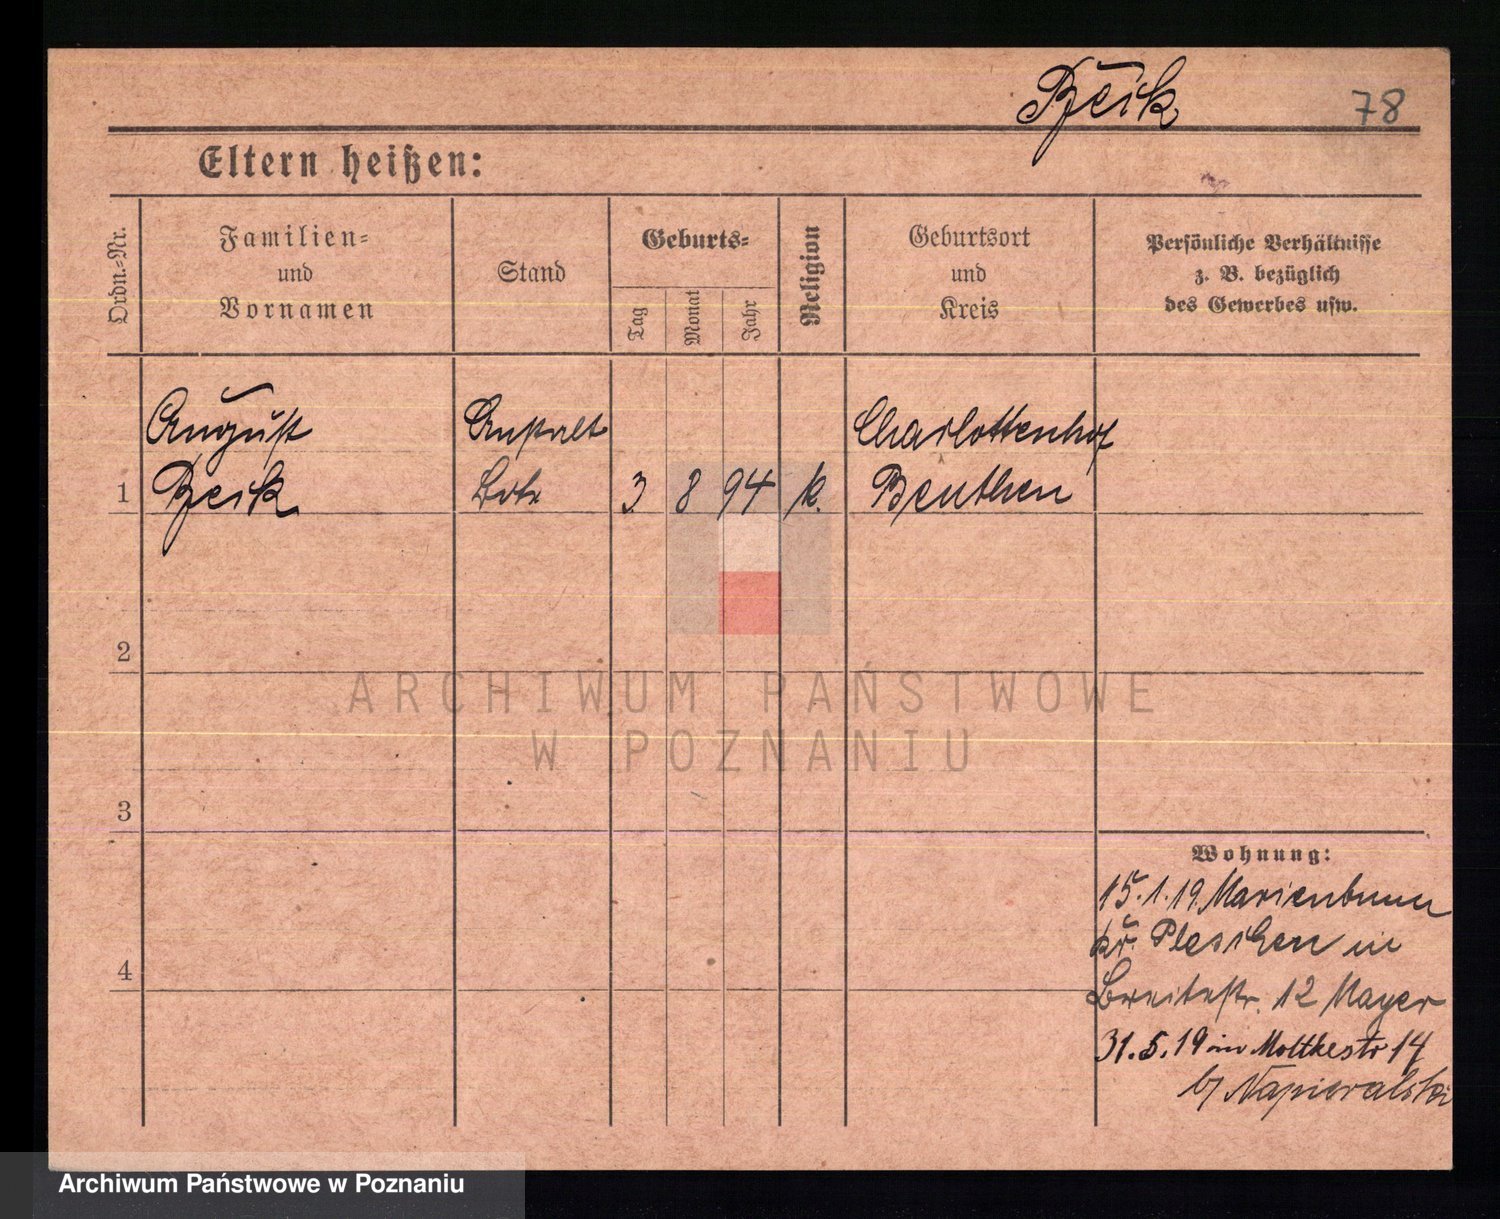 78
Eltern heißen:
Ordn.-Nr.
Familien-
und
Vornamen
Stand
Geburts-
Tag
Monat
Jahr
Religion
Geburtsort
und
Kreis
Persönliche Verhältnisse
z. B. bezüglich
des Gewerbes usw.
August Anstalt Charlottenhof
1 3 8 94 k. Beuthen
2
3
4
ARCHIWUM PAŃSTWOWE
W POZNANIU
Wohnung:
15.1.19 Marienbrunn
Kr. Pleschen in
Breitestr. 12 Mayer
31.5.19 in Moltkestr 14
b/ Napieralski
Archiwum Państwowe w Poznaniu